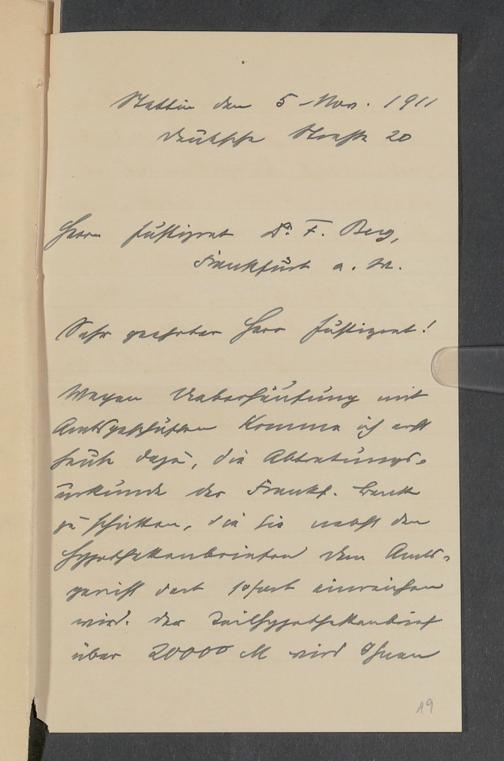 Stettin den 5 Nov. 1911
Deutsche Straße 20
Herrn Justizrat Dr. F. Berg,
Frankfurt a. M.
Sehr geehrter Herr Justizrat!
Wegen Ueberhäufung mit
Amtsgeschäften komme ich erst
heute dazu, die Abtretungs-
urkunde der Frankf. Bank
zu schicken, die sie nebst den
Hypothekenbriefen dem Amts-
gericht dort sofort einreichen
wird. Der Teilhypothekenbrief
über 20000 M wird Ihnen
19